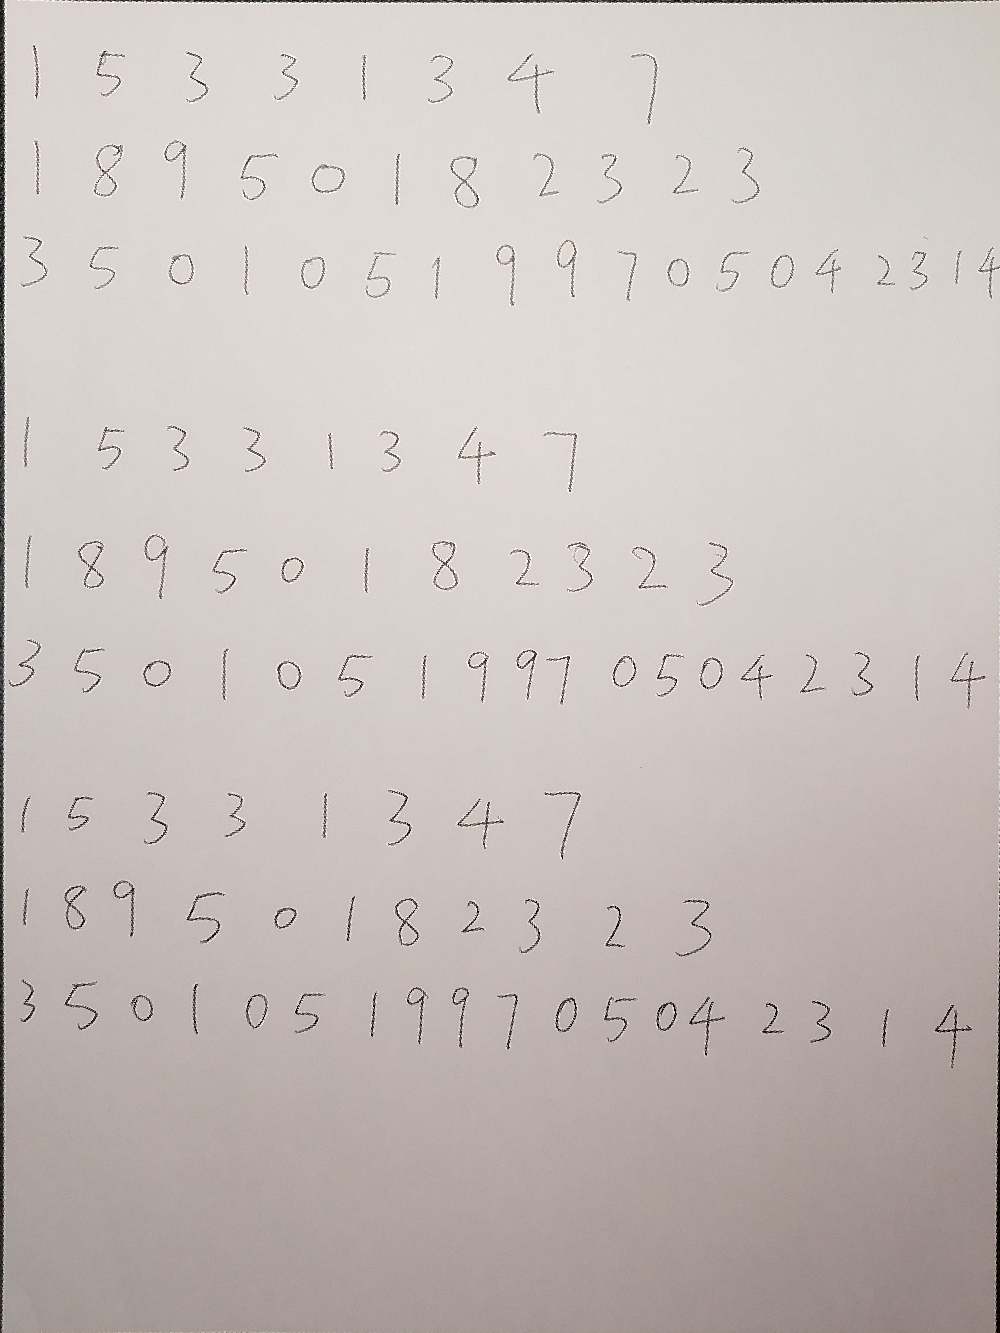 1 5 3 3 1 3 4 7
1 8 9 5 0 1 8 2 3 2 3
3 5 0 1 0 5 1 9 9 7 0 5 0 4 2 3 1 4
1 5 3 3 1 3 4 7
1 8 9 5 0 1 8 2 3 2 3
3 5 0 1 0 5 1 9 9 7 0 5 0 4 2 3 1 4
1 5 3 3 1 3 4 7
1 8 9 5 0 1 8 2 3 2 3
3 5 0 1 0 5 1 9 9 7 0 5 0 4 2 3 1 4